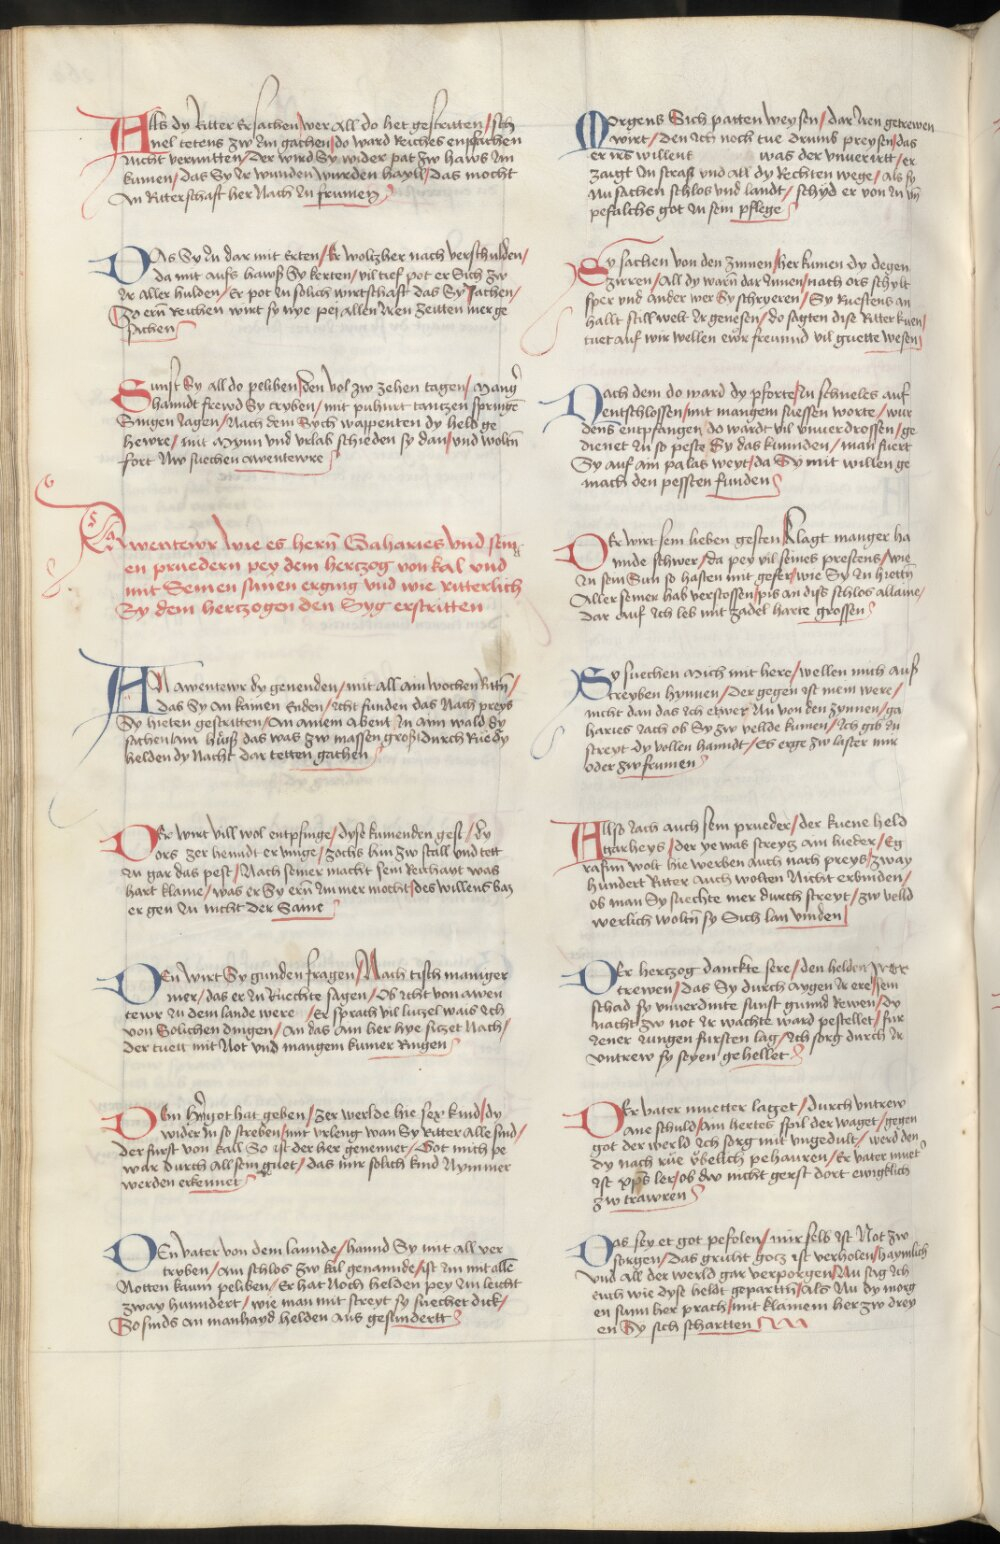 Alls dy Ritter ersachen/wer all do het gestritten/sch
nel tetens zw Im gachen/do ward Reiches enpfachen
nicht vermitten/Der wird Sy wider pat zw haws Im
kumen/das Sy Ir wunden wurden hayll/Das mocht
An Ritterschafft her Nach In frumen
DAs Sy In dar mit Erten/Er wolt her nach verschulden/
da mit aufs hawß Sy kerten/vil tief pot er Sich zw
Ir aller hulden/Er pot In solich wirtschafft das Sy Jachen/
Zo ern Reichen wirt sy nye pej allen Iren zeitten mer ge
sachen
Sunst Sy all do peliben/den vol zw zehen tagen/Mang
hanndt frewd Sy tryben/mit puhurt tanntzen springen
Singen sagen/Nach dem Sych wappenten dy held ge
hewre/mit Mynn vnd vrlab schieden sy dan/vnd wolten
fort Nw suechen awentewre
Awentewr wie es hern Gaharies vnd sein
en pruedern pey dem hertzog von kal vnd
mit Seinen sünen erging vnd wie ritterlich
Sy dem hertzogen den Syg erstritten
AN awentewr dy genenden/mit all ain wochen Rittn/
Das Sy An kamen Enden/Icht funden das Nach preys
Sy hieten gestritten/An ainem Abent In aim wald Sy
sachen/ain hauß das was zw massen groß/durch Rue dy
helden dy Nacht dar tetten gachen
DEr wirt vill wol entpfinge/dyse kumenden gest/dy
ors zer henndt er vinge/zochs hin zw stall vnd tett
In gar das pest/Nach seiner macht sein Reichait was
hart klaine/was er Sy ern Immer mocht/des willens bas
er gen In nicht Der Same
DEn wirt Sy gunden fragen/Nach tisch maniger
mer/das er In Ruechte sagen/Ob Icht von awen
tewr In dem lande were/Er sprach vil lutzel wais Ich
von Solichen dingen/An das Ain her hye sitzet Nach/
Der tuett mit Not vnd mangem kumer Ringen
DEm hat got hat geben/zer werlde hie sex kind/dy
wider In so streben/mit vrleng wan Sy Ritter Alle sind/
Der furst von kall So ist der her genennet/Got mich pe
war durch All sein guet/das mir solich kind Nymmer
werden erkennet
DEn vater von dem lannde/hannd Sy mit all ver
tryben/Ain schlos zw kal genannde/ist Im mit allen
Notten kaum peliben/Er hat Noch helden pey Im leicht
zway hundert/wie man mit streyt sy suechet dick/
So sinds An manhayd helden Aus gesundertt
MOrgens Sich patten weysen/dar Iren getrewen
wirt/Den Ich noch tue drumb preysen/das
er irs willent was der vnuerirtt/er
zaigt In strass vnd All dy Rechten wege/Als sy
Nu sachen schlos vnd landt/schyd er von In vn
pefalchs got In sein pflege
Sy sachen von den zinnen/her kumen dy degen
zieren/All dy warn dar Innen/nach ors schylt
sper vnd ander wer Sy schryeren/Sy Ruestens an
hallt still welt Ir genesen/do sagten dise Ritter kuen/
tuet auf wir wellen ewr freunnd vil guette wesen
NAch dem do ward dy pforte/In schneles auf
entschlossen/mit mangem suessen worte/wur
dens entpfangen do wardt vil vnuerdrossen/ge
dienet In so peste Sy das kunnden/man fuert
Sy auf ain palas weyt/da Sy mit willen ge
mach den pessten funden
DEr wirt sein lieben gesten/Klagt manger ha
nnde schwer/da pey vil seines prestens/wie
In sein Sun so hasten mit gefer/wie Sy In hietten
Aller seiner hab verstossen/pis an diss schlos allaine/
Dar auf Ich leb mit zadel harte grossen
SY suechen Mich mit here/wellen mich auß
treyben hynnen/Der gegen ist mein were/
nicht dan das Ich etwer Nu von den zynnen/ga
haries Iach ob Sy zw vellde kumen/Ich gib In
streyt dy vollen hanndt/Es erge zw laster mir
oder zw frumen
Allso Iach auch sein prueder/der kuene held
Agarheys/der ye was streytz ain lieder/Eg
rafin wolt hie werben Auch nach preys/zway
hundert Ritter Auch wolten Nicht erbinden/
ob man Sy suechte mer durch streyt/zw velld
werlich woltn sy Sich lan vinden
DEr hertzog danckte sere/den helden
trewen/das Sy durch Aygen Ir ere/sein
schad sy vnuerdinte sunst gunnd Rewen/Dy
nacht zw not Ir wachte ward pestellet/fur
Iener Iungen fursten lag/Ich sorg durch Ir
vntrew sy seyen gehellet
DEr vater muetter laget/durch vntrew
Ane schuld/Ain hertes spil der waget/gegen
got der werld Ich sorg mit vngedult/werd den
dy nach rue vbelich pehauren/Er vater muet
ist xpus ler/ob dw nicht gerst dort ewigklich
zw trawren
DAs sey et got pefolen/mir selb ist Not zw
sorgen/Das gruht goz ist verholen/haymlich
vnd All der werld gar verporgen/Nu sag Ich
euch wie dyse heldt gepartten/Als Nu dy morg
en sunn her prach/mit klainem her zw drey
en Sy sich schartten